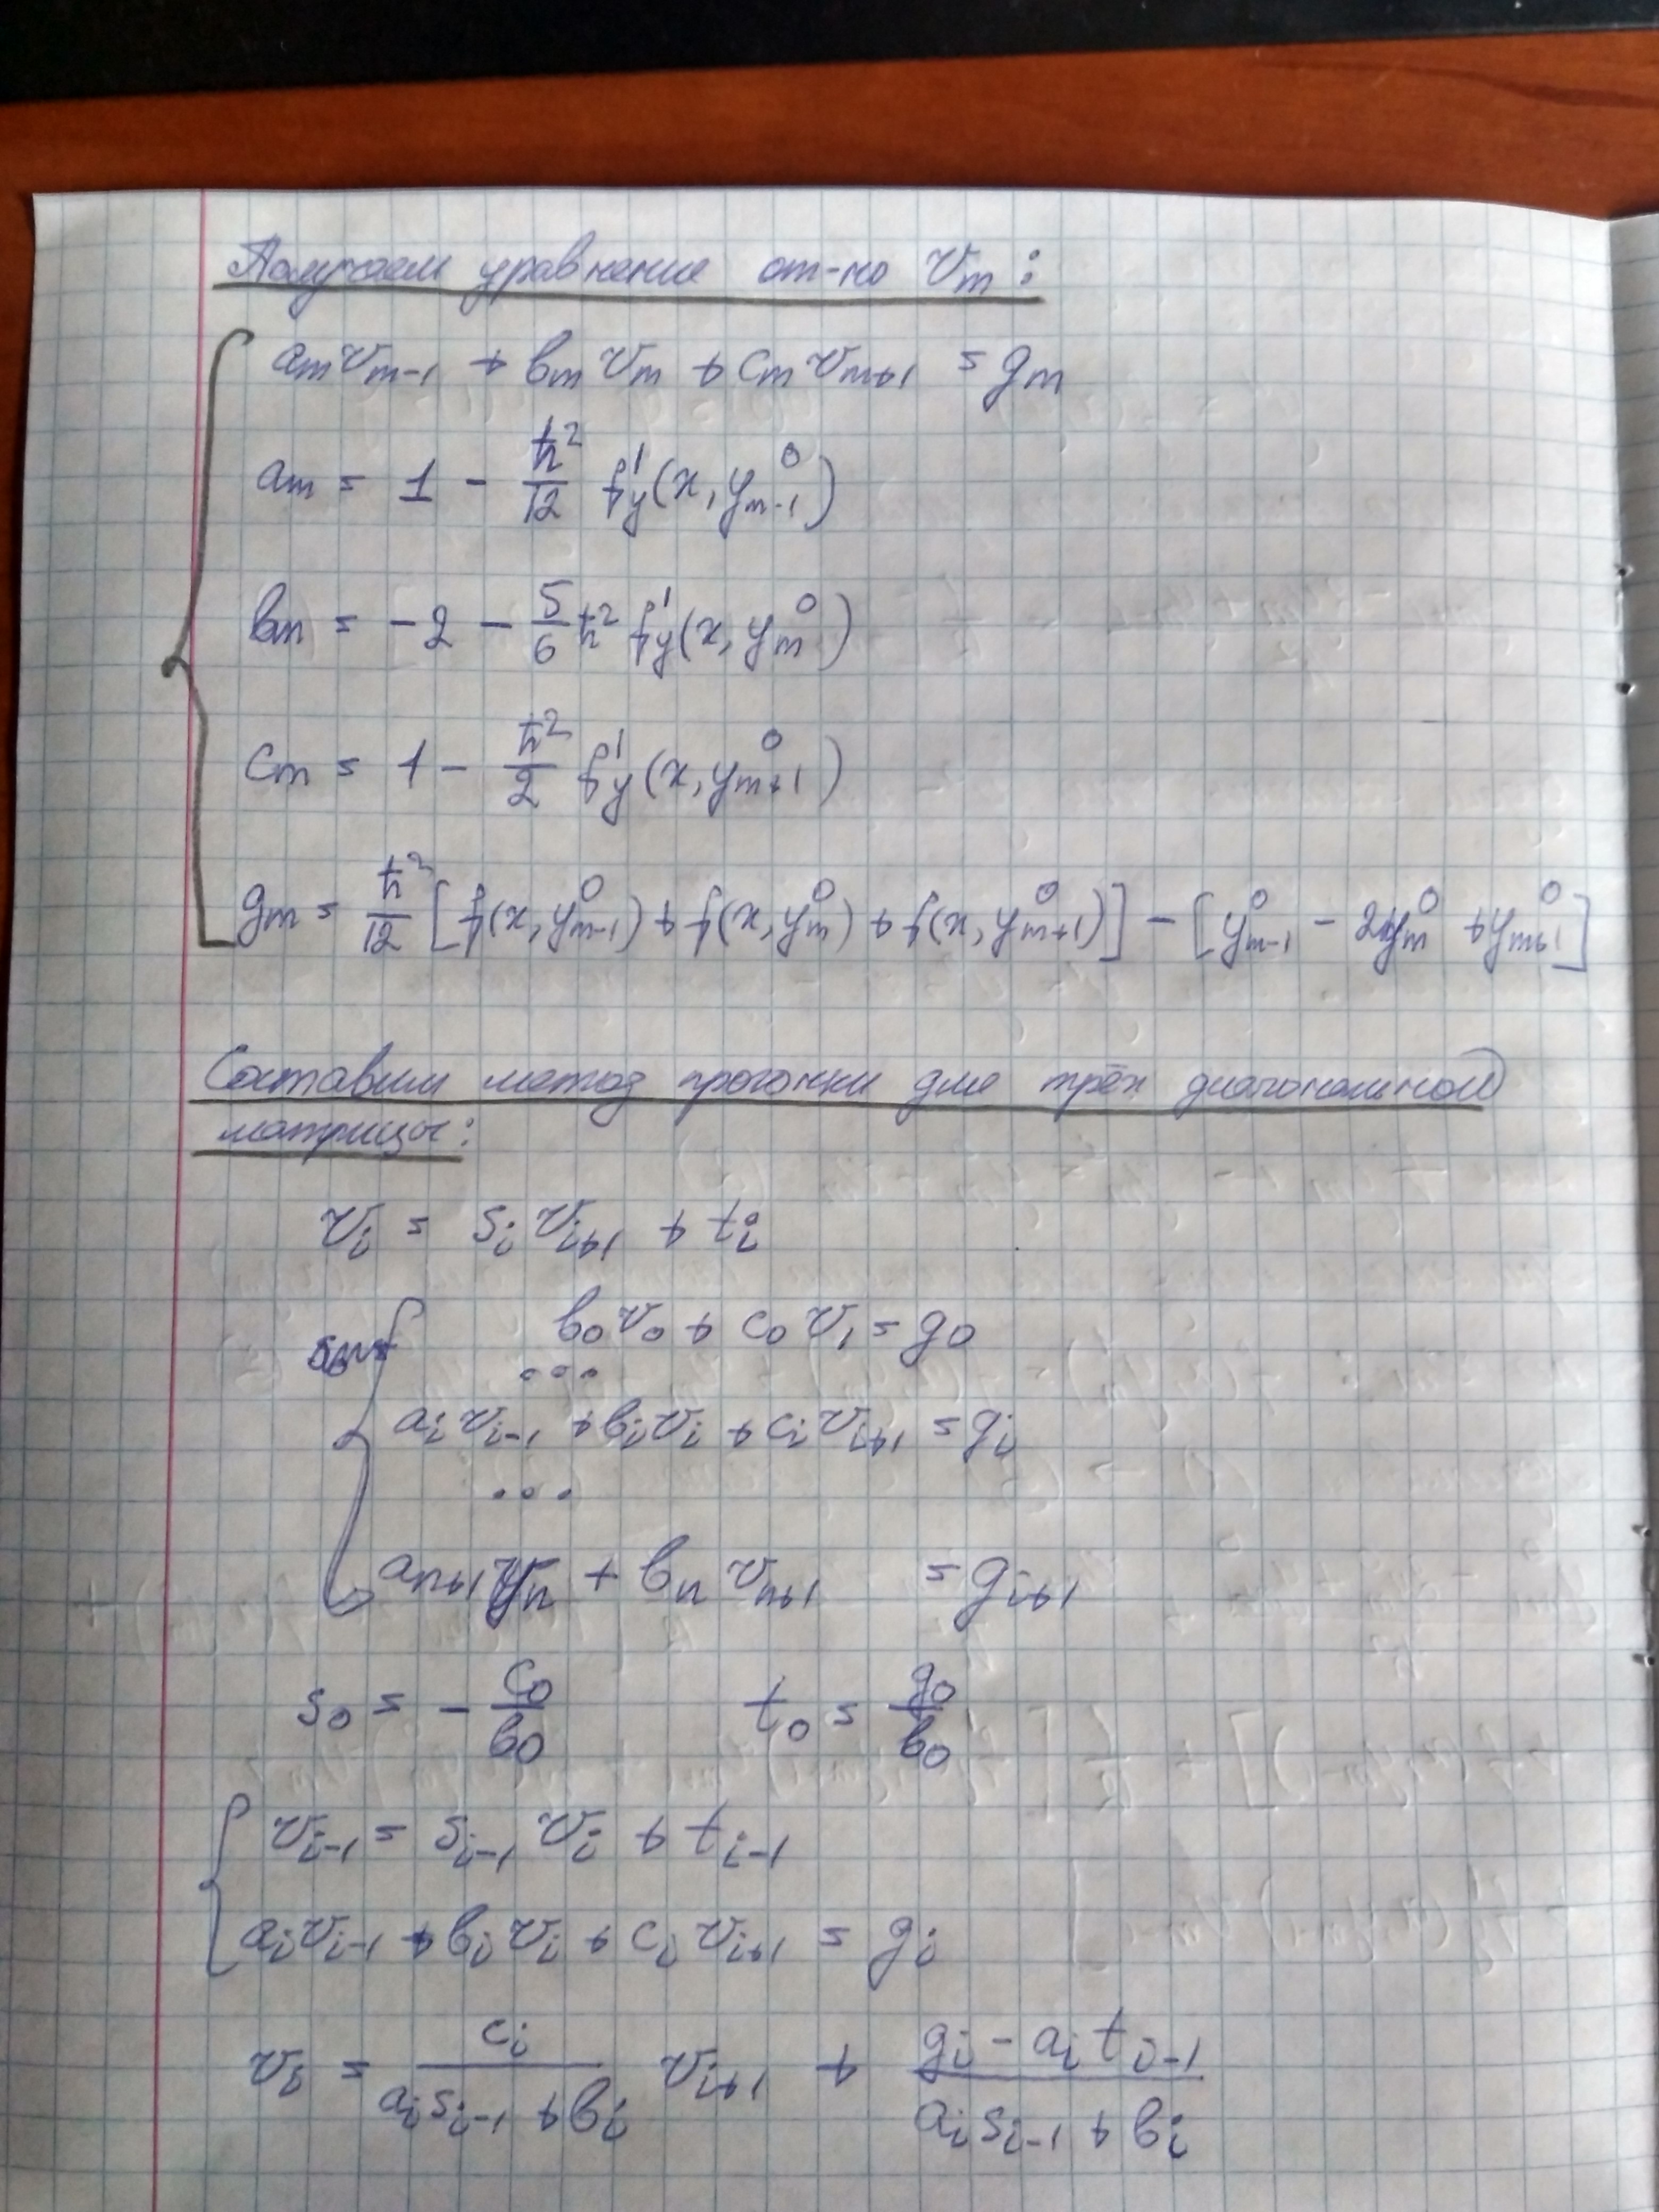 Получаем уравнение от-но v_m:
a_m v_{m-1} + b_m v_m + c_m v_{m+1} = g_m
a_m = 1 - h²/12 f'_y(x, y⁰_{m-1})
b_m = -2 - 5/6 h² f'_y(x, y⁰_m)
c_m = 1 - h²/2 f'_y(x, y⁰_{m+1})
g_m = h²/12 [f(x, y⁰_{m-1}) + f(x, y⁰_m) + f(x, y⁰_{m+1})] - [y⁰_{m-1} - 2y⁰_m + y⁰_{m+1}]
Составим метод прогонки для трёх диагональной
матрицы:
v_i = s_i v_{i+1} + t_i
b_0 v_0 + c_0 v_1 = g_0
...
a_i v_{i-1} + b_i v_i + c_i v_{i+1} = g_i
...
a_{n+1} y_n + b_n v_{n+1} = g_{i+1}
s_0 = - c_0/b_0 t_0 = g_0/b_0
v_{i-1} = s_{i-1} v_i + t_{i-1}
a_i v_{i-1} + b_i v_i + c_i v_{i+1} = g_i
v_i = c_i/(a_i s_{i-1} + b_i) v_{i+1} + (g_i - a_i t_{i-1})/(a_i s_{i-1} + b_i)